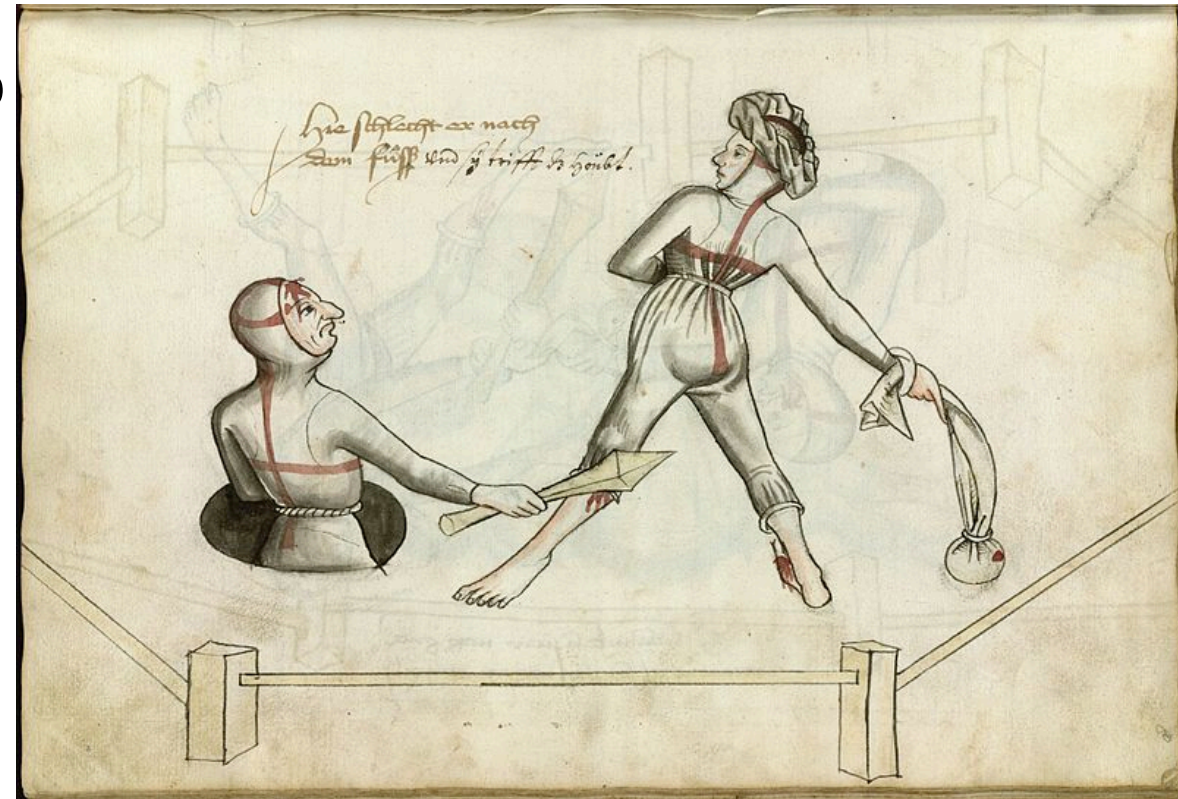 Hie schlecht er nach
dem fůsß und sy trifft dz höubt.